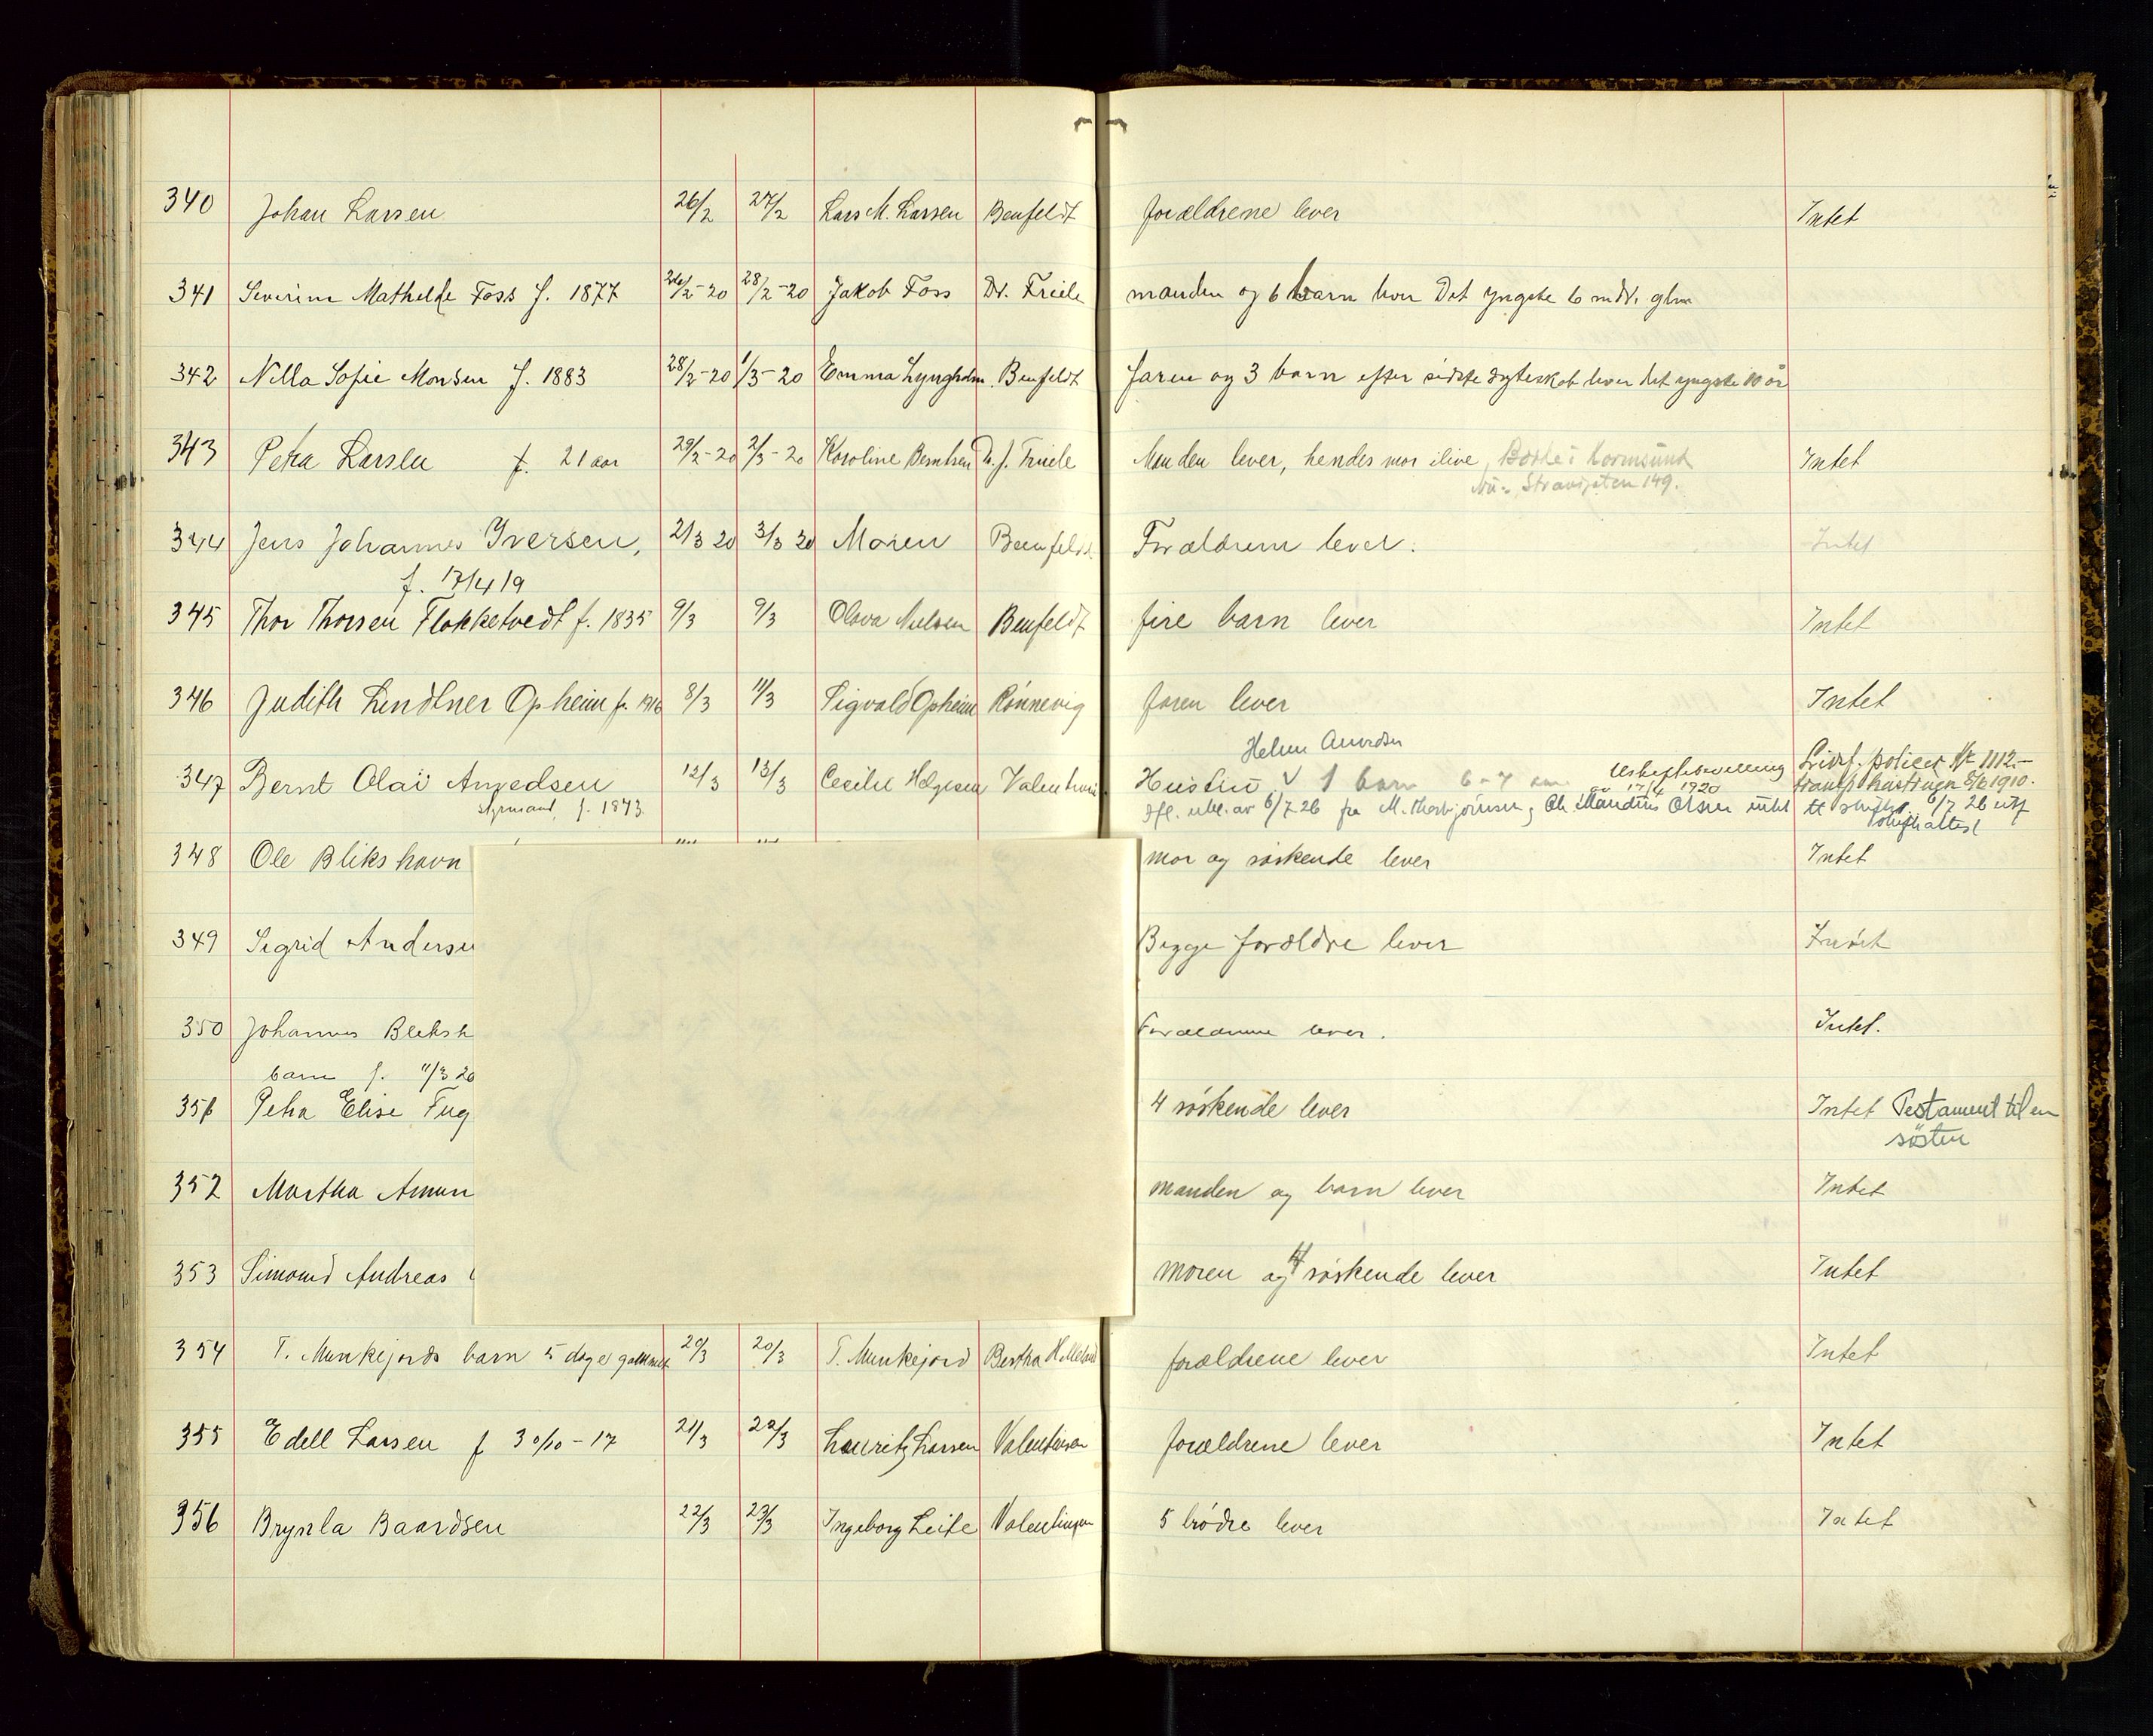 340 Johan Larsen 26/2 27/2 Lars M. Larsen Benfeldt forældrene lever Intet
341 Severine Mathilde Foss f. 1877 26/2-20 28/2-20 Jakob Foss Dr. Friele manden og 6 barn lever Det yngste 6 mdr.
342 Nilla Sofie Monsen f. 1883 28/2-20 1/3-20 Emma Lyngholm Benfeldt faren og 3 barn efter sidste lever det yngste 10 år
343 Petra Larsen f. 21 aar 29/2-20 2/3-20 Karoline Berntsen Dr. J. Friele Manden lever, hendes mor ilive, Karmsund Intet
149.
344 Jens Johannes Iversen, 2/3 20 3/3 20 Moren Benfeldt Forældrene lever. Intet
f. 17/4 19
345 Thor Thorsen Flokketvedt f. 1835 9/3 9/3 Olava Nielsen Benfeldt fire barn lever Intet
346 Judith Lindtner Opheim f. 1916 8/3 11/3 Sigvald Opheim Rönnevig faren lever Intet
347 Bernt Olai Amedsen 12/3 13/3 Cecilie Helgesen Hustru 1 barn 6-7 Uskiftebevilling 17/4 1920 Livsf. police 1112.-
f. 1873 av 6/7 26 fra M. Olsen 6/7 26
348 Ole Blikshavn mor og søskende lever Intet
349 Sigrid Anderse Begge forældre lever Intet
350 Johannes Bleksh Forældrene lever. Intet.
barn f. 11/3 20
351 Petra Elise Fug 4 søskende lever Intet Testament til en
söster
352 Martha Amun manden og barn lever Intet
353 Simond Andreas moren og 4 søskende lever Intet
354 T. Munkejords barn 5 dage gammel 20/3 20/3 T. Munkejord Bertha forældrene lever Intet
355 Edell Larsen f 30/10-17 21/3 22/3 Lauritz Larsen Valentinsen forældrene lever Intet
356 Brynla Baardsen 22/3 23/3 Ingeborg Leite Valentinsen 5 brødre lever Intet